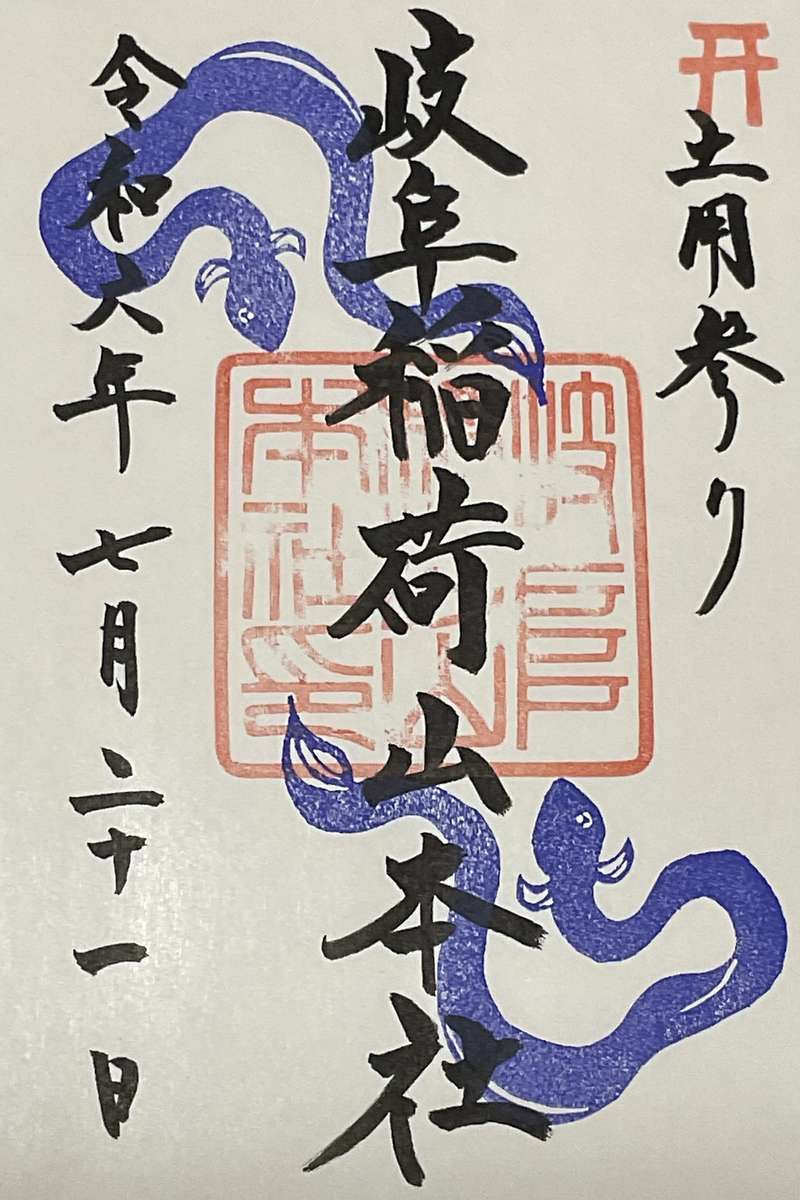 土用参り
岐阜稲荷山本社
岐阜稲荷山本社印
令和六年 七月二十一日